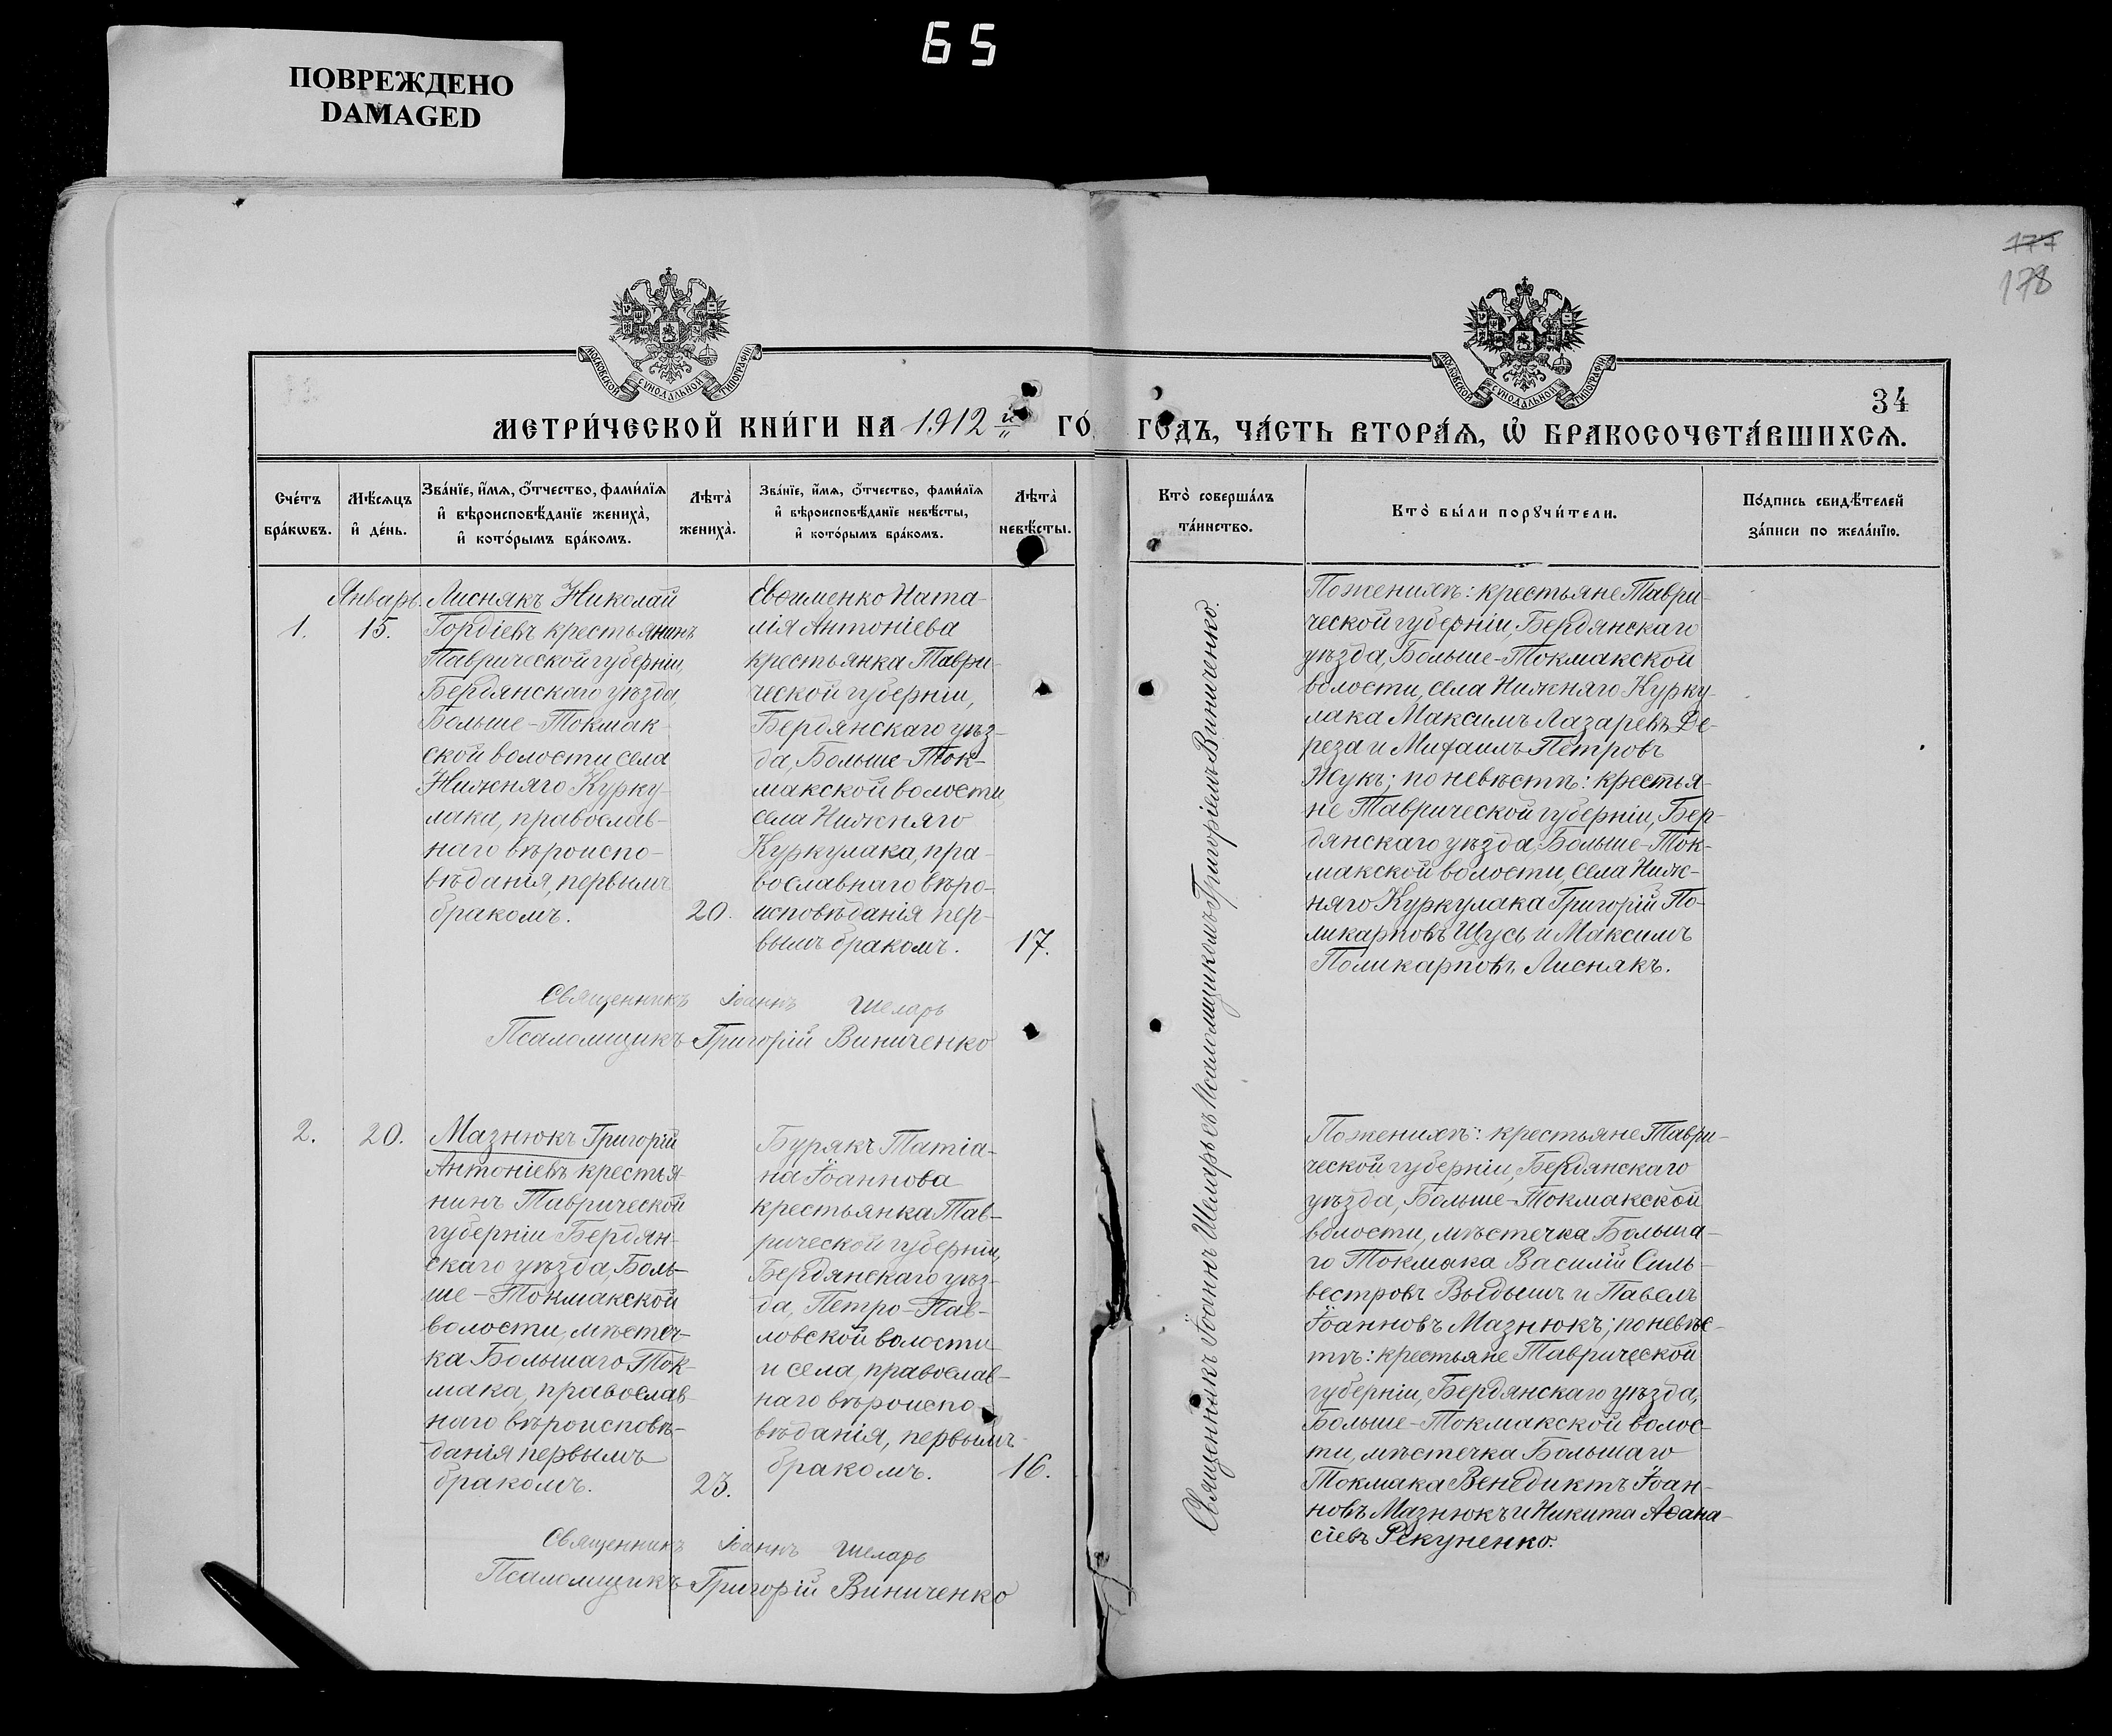 65
ПОВРЕЖДЕНО
DAMAGED
177
178
МОСКОВСКОЙ СѴНОДАЛЬНОЙ ТИПОГРАФІИ
МОСКОВСКОЙ СѴНОДАЛЬНОЙ ТИПОГРАФІИ
34
МЕТРИ́ЧЕСКОЙ КНИ́ГИ НА 1912 й ГО
ГО́ДЪ, ЧА́СТЬ ВТОРА́Ѧ, Ѽ БРАКОСОЧЕТА́ВШИХСѦ.
Сче́тъ
бра́кѡвъ.
Мѣ́сѧцъ
и҆ де́нь.
Зва́нїе, и҆́мѧ, ѻ҆́тчество, фами́лїѧ
и҆ вѣроисповѣ́данїе жениха̀,
и҆ кото́рымъ бра́комъ.
Лѣта̀
жениха̀.
Зва́нїе, и҆́мѧ, ѻ҆́тчество, фами́лїѧ
и҆ вѣроисповѣ́данїе невѣ́сты,
и҆ кото́рымъ бра́комъ.
Лѣта̀
невѣ́сты.
Кто̀ соверша́лъ
та́инство.
Кто̀ бы́ли порꙋчи́тели.
По́дпись свидѣ́телей
за́писи по жела́нїю.
1.
Январь.
15.
Лиснякъ Николай
Гордіевъ крестьянинъ
Таврической губерніи,
Бердянскаго уѣзда,
Больше-Токмак-
ской волости села
Нижняго Курку-
лака, православ-
наго вѣроиспо-
вѣданія, первымъ
бракомъ.
20.
Евѳименко Ната-
лія Антоніева
крестьянка Таври-
ческой губерніи,
Бердянскаго уѣз-
да, Больше-Ток-
макской волости
села Нижняго
Куркулака, пра-
вославнаго вѣро-
исповѣданія пер-
вымъ бракомъ.
17.
Священникъ Іоаннъ Шеларь
Псаломщикъ Григорій Виниченко
Священникъ Іоаннъ Шеларь съ псаломщикомъ Григоріемъ Виниченко.
По женихѣ: крестьяне Таври-
ческой губерніи, Бердянскаго
уѣзда, Больше-Токмакской
волости, села Нижняго Курку-
лака Максимъ Лазаревъ Де-
реза и Михаилъ Петровъ
Жукъ; по невѣстѣ: крестья-
не Таврической губерніи, Бер-
дянскаго уѣзда, Больше-Ток-
макской волости, села Ниж-
няго Куркулака Григорій По-
ликарповъ Щусь и Максимъ
Поликарповъ Лиснякъ.
2.
20.
Мазнюкъ Григорій
Антоніевъ крестья-
нинъ Таврической
губерніи Бердян-
скаго уѣзда, Боль-
ше-Токмакской
волости, мѣстеч-
ка Большаго Ток-
мака, православ-
наго вѣроисповѣ-
данія первымъ
бракомъ.
23.
Бурякъ Татіа-
на Іоаннова
крестьянка Тав-
рической губерніи,
Бердянскаго уѣз-
да, Петро-Пав-
ловской волости
и села, православ-
наго вѣроиспо-
вѣданія, первымъ
бракомъ.
16.
Священникъ Іоаннъ Шеларь
Псаломщикъ Григорій Виниченко
По женихѣ: крестьяне Таври-
ческой губерніи, Бердянскаго
уѣзда, Больше-Токмакской
волости, мѣстечка Больша-
го Токмака Василій Силь-
вестровъ Выдышъ и Павелъ
Іоанновъ Мазнюкъ; по невѣс-
тѣ: крестьяне Таврической
губерніи, Бердянскаго уѣзда,
Больше-Токмакской волос-
ти, мѣстечка Большаго
Токмака Венедиктъ Іоан-
новъ Мазнюкъ и Никита Аѳана-
сіевъ Рекуненко.